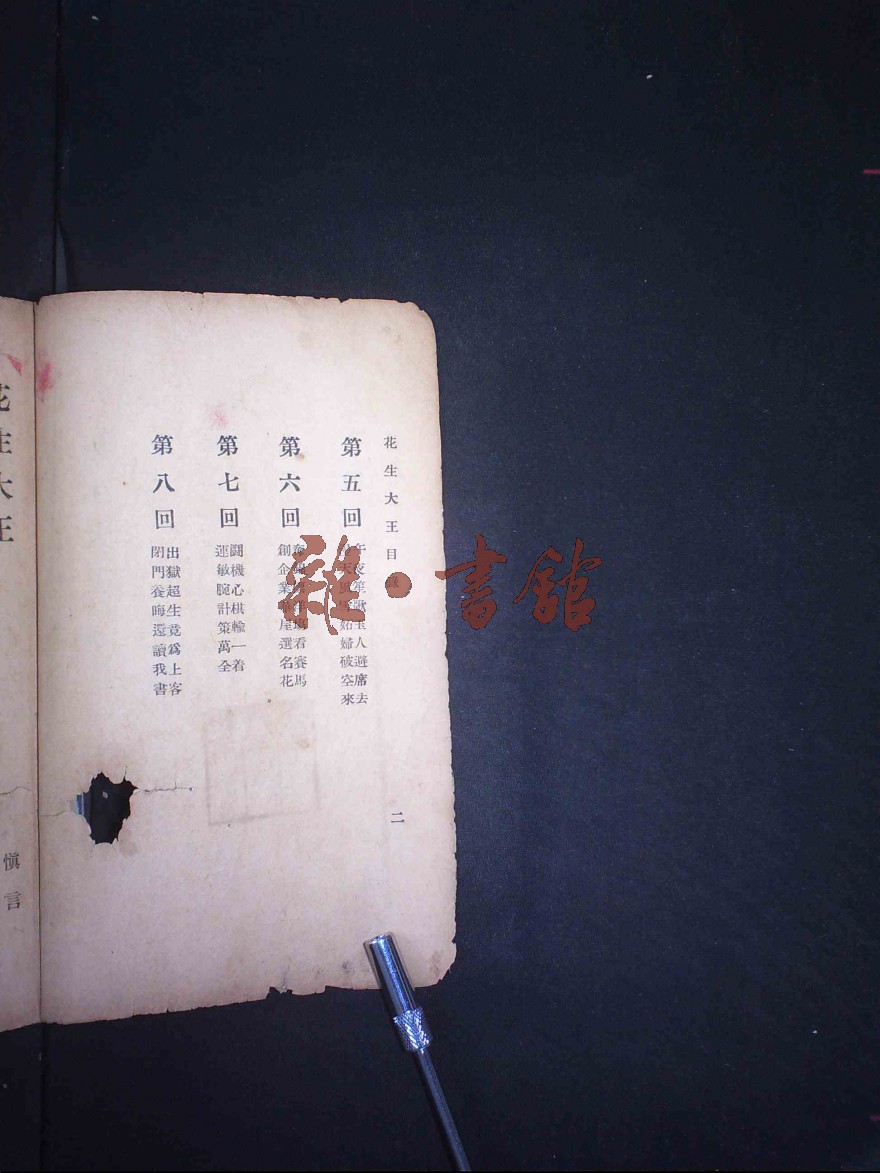 花生大王目錄
第五回
午夜笙歌玉人避席去
天風妬婦破空來
第六回
看賽馬
創企業華屋選名花
第七回
鬪機心棋輸一着
運敏腕計策萬全
第八回
出獄超生竟爲上客
閉門養晦還讀我書
二
花生大王
愼言
雜·書館